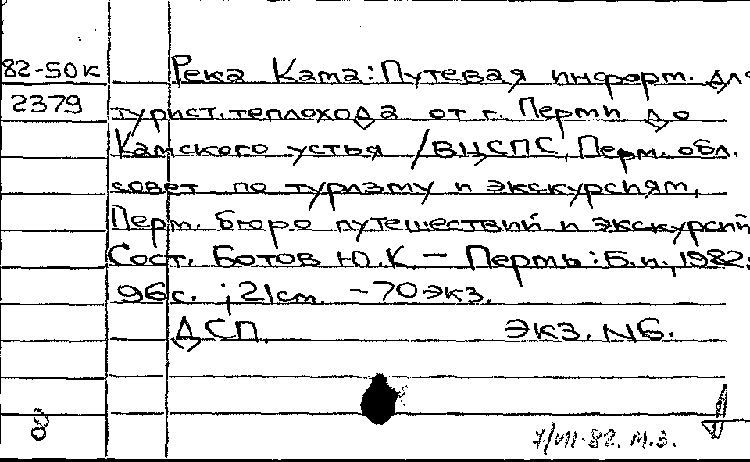 82-50к
2379
Река Кама: Путевая информ. для
турист. теплохода от г. Перми до
Камского устья / ВЦСПС, Перм. обл.
совет по туризму и экскурсиям,
Перм. бюро путешествий и экскурсий
Сост. Ботов Ю.К. – Пермь: Б.и., 1982.
96 с. ; 21 см. – 70 экз.
ДСП. экз. № 6.
7/VII-82. М.З.